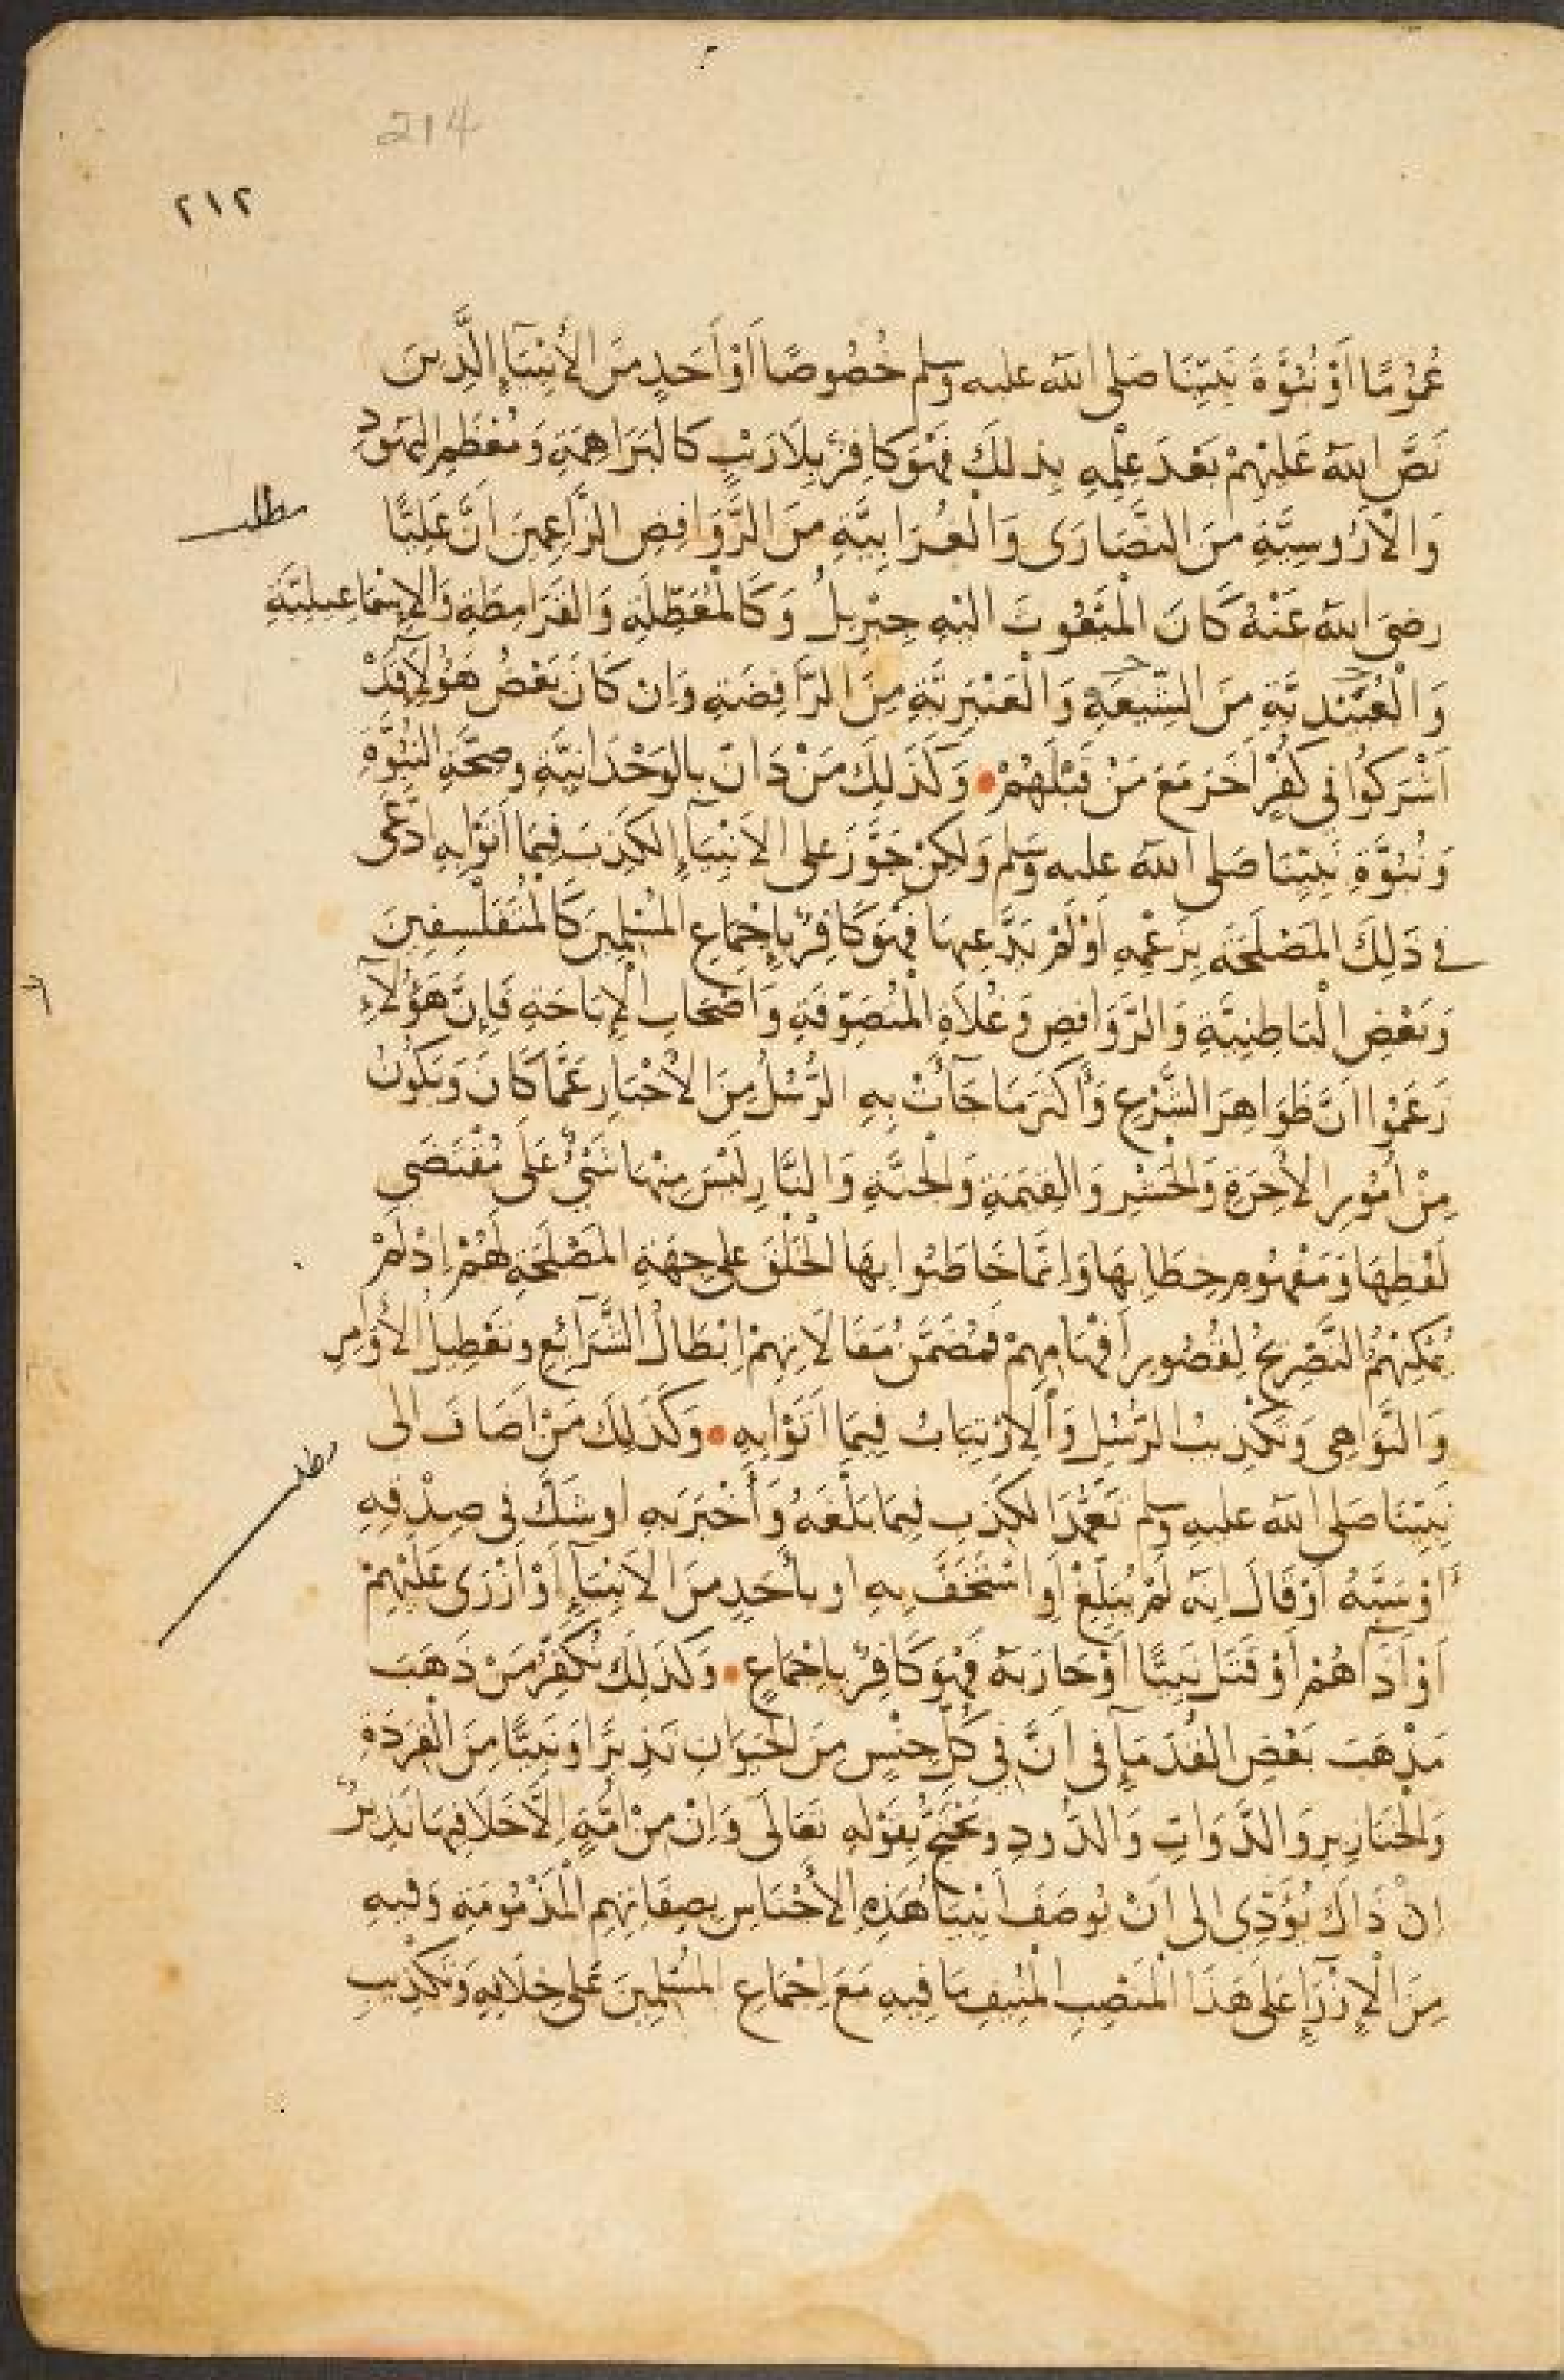 214
٢١٢
عُمُوْمًا اَوْ نُبُوَّةَ نَبِيِّنَا صَلى الله عليه وسلم خُصُوصًا اَوْ اَحَدٍ مِنَ الاَنْبِيَآءِ الَّذِينَ
نَصَّ اللهُ عَلَيْهِمْ بَعْدَ عِلْمِهِ بِذلكَ فَهُوَ كَافِرٌ بِلَا رَيْبٍ كَالبَرَاهِمَةِ وَمُعْظَمِ اليَهُودِ
مطلب
وَالْاَرُوسِيَّةِ مِنَ النَّصَارَى وَالْغُرَابِيَّةِ مِنَ الرَّوَافِضِ الزَّاعِمِينَ اَنَّ عَلِيًّا
رضىَ اللهُ عَنْهُ كَانَ الْمَبْعُوثَ اِلَيْهِ جِبْرِيلُ وَكَالْمُعَطِّلَةِ وَالقَرَامِطَةِ وَالاِسْمَاعِيليَّةِ
وَالْعُبَيْدِيَّةِ مِنَ الشِّيعَةِ وَالْعَنْبَرِيَّةِ مِنَ الرَّافِضَةِ وَاِنْ كَانَ بَعْضُ هَؤُلَآءِ قَدْ
اَشْرَكُوا فى كُفْرٍ اَخَرَ مَعَ مَنْ قَبْلَهُمْ • وَكَذَلِكَ مَنْ دَانَ بِالوَحْدَانِيَّةِ وصِحَّةِ النُّبُوَّةِ
وَنُبُوَّةِ نَبِيِّنَا صَلى الله عليه وسلم وَلكِنْ جَوَّزَ على الاَنْبِيَآءِ الكَذِبَ فِيمَا اَتَوْا بِهِ ادَّعَى
فى ذَلِكَ المَصْلَحَةَ بِزَعْمِهِ اَوْ لَمْ يَدَّعِهَا فَهُوَ كَافِرٌ بِاِجْمَاعِ المُسْلِمِينَ كَالْمُتَفَلْسِفِينَ
وَبَعْضِ الْبَاطِنِيَّةِ وَالرَّوَافِضِ وَغُلَاةِ الْمُتَصَوِّفَةِ وَاَصْحَابِ الْاِبَاحَةِ فَاِنَّ هَؤُلَآءِ
زَعَمُوا اَنَّ ظَوَاهِرَ الشَّرْعِ وَاَكْثَرَ مَا جَآءَتْ بِهِ الرُّسُلُ مِنَ الاَخْبَارِ عَمَّا كَانَ وَيَكُونُ
مِنْ اُمُورِ الاَخِرَةِ وَالْحَشْرِ وَالقِيمَةِ وَالْجَنَّةِ وَالنَّارِ لَيْسَ مِنْهَا شَىْءٌ عَلَى مُقْتَضَى
لَفْظِهَا وَمَفْهُومِ خِطَابِهَا وَاِنَّمَا خَاطَبُوا بِهَا الْخَلْقَ على جِهَةِ المَصْلَحَةِ لَهُمْ اِذْ لَمْ
يُمْكِنْهُمُ التَّصْرِيحُ لِقُصُورِ اَفْهَامِهِمْ فَمُضَمَّنُ مَقَالَاتِهِمْ اِبْطَالُ الشَّرَآئِعِ وتَعْطِيلُ الاَوَامِرِ
وَالنَّوَاهِى وَتَكْذِيبُ الرُّسُلِ وَالْاِرْتِيَابُ فِيمَا اَتَوْا بِهِ • وَكَذَلِكَ مَنْ اَضَافَ الى
نَبِيِّنَا صَلى الله عليه وسلم تَعَمُّدَ الكَذِبِ فِيمَا بَلَّغَهُ وَاَخْبَرَ بِهِ او شَكَّ فى صِدْقِهِ
اَوْ سَبَّهُ اَوْ قَالَ اِنَّهُ لَمْ يُبَلِّغْ اَوِ اسْتَخَفَّ بِهِ او بِاَحَدٍ مِنَ الاَنْبِيَآءِ اَوْ اَزْرَى عَلَيْهِمْ
اَوْ اَذَاهُمْ اَوْ قَتَلَ نَبِيًّا اَوْ حَارَبَهُ فَهُوَ كَافِرٌ بِاِجْمَاعٍ • وَكَذَلِكَ نُكَفِّرُ مَنْ ذَهَبَ
مَذْهَبَ بَعْضِ القُدَمَآءِ فى اَنَّ فى كُلِّ جِنْسٍ مِنَ الحَيَوَانِ نَذِيرًا وَنَبِيًّا مِنَ الْقِرَدَةِ
وَالْخَنَازِيرِ وَالدَّوَابِّ وَالدُّودِ وَيَحْتَجُّ بِقَوْلِهِ تَعَالَى وَاِنْ مِنْ اُمَّةٍ اِلَّا خَلَا فِيهَا نَذِيرٌ
اِنْ ذَاكَ يُؤَدِّى الى اَنْ يُوصَفَ اَنْبِيَآءُ هَذِهِ الاَجْنَاسِ بِصِفَاتِهِمِ الْمَذْمُومَةِ وَفِيهِ
مِنَ الْاِزْرَآءِ عَلَى هَذَا الْمَنْصِبِ الْمُنِيفِ مَا فِيهِ مَعَ اِجْمَاعِ المُسْلِمِينَ عَلى خِلَافِهِ وَتَكْذِيبِ